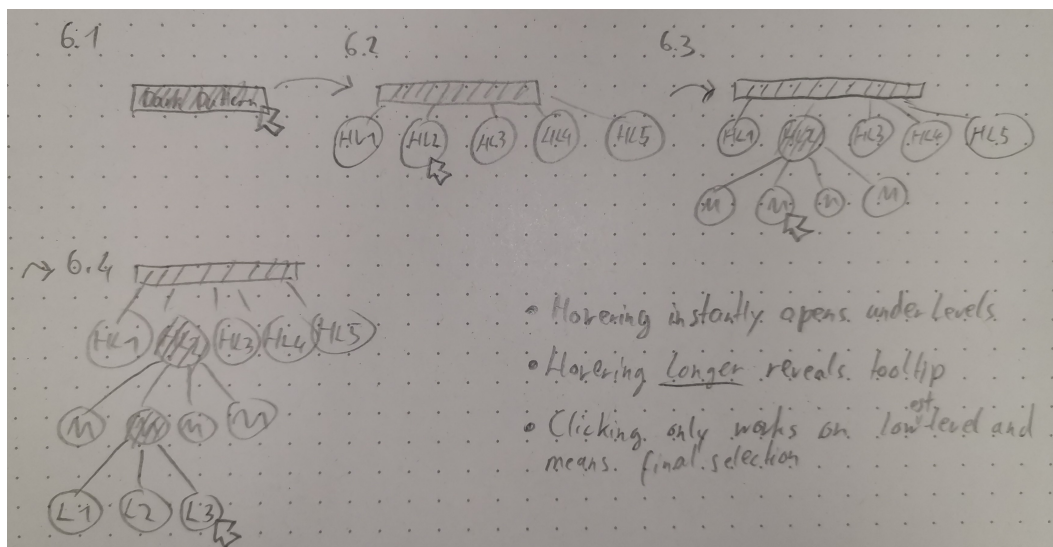 6.1
6.2
6.3
Dark Pattern
HL1 HL2 HL3 HL4 HL5
HL1 HL2 HL3 HL4 HL5
M M M M
6.4
HL1 HL2 HL3 HL4 HL5
M M M M
L1 L2 L3
• Hovering instantly opens under levels
• Hovering longer reveals tooltip
• Clicking only works on lowest level and
means final selection